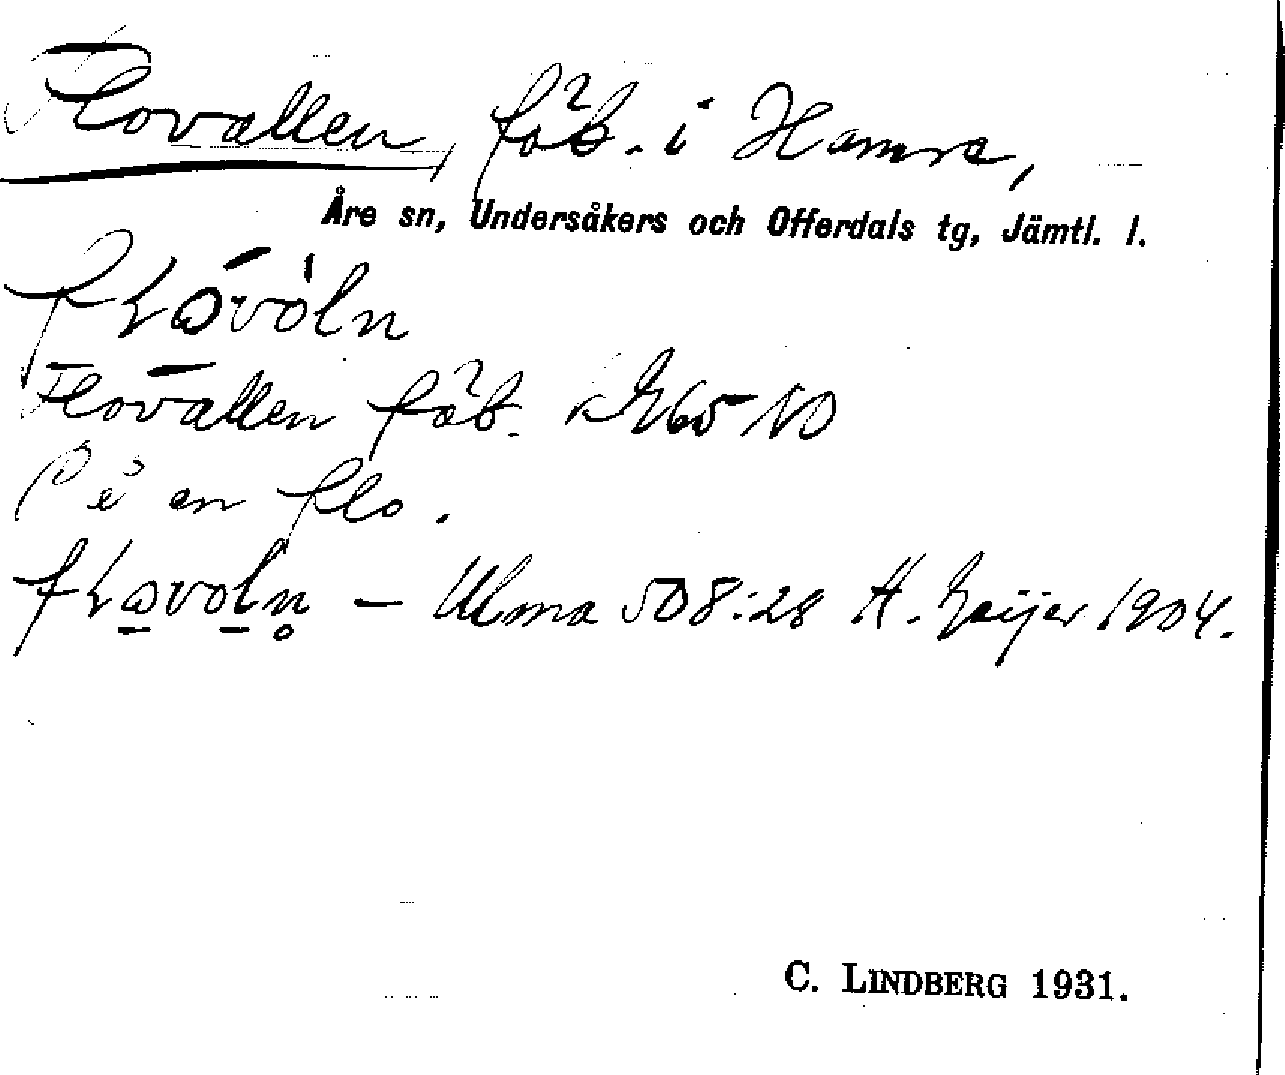 Flovallen, fäb. i Hamre,
Åre sn, Undersåkers och Offerdals tg, Jämtl. l.
Flovallen fäb. K G65 NO
På en flo.
— Ulma 508:28 H. Geijer 1904.
C. LINDBERG 1931.